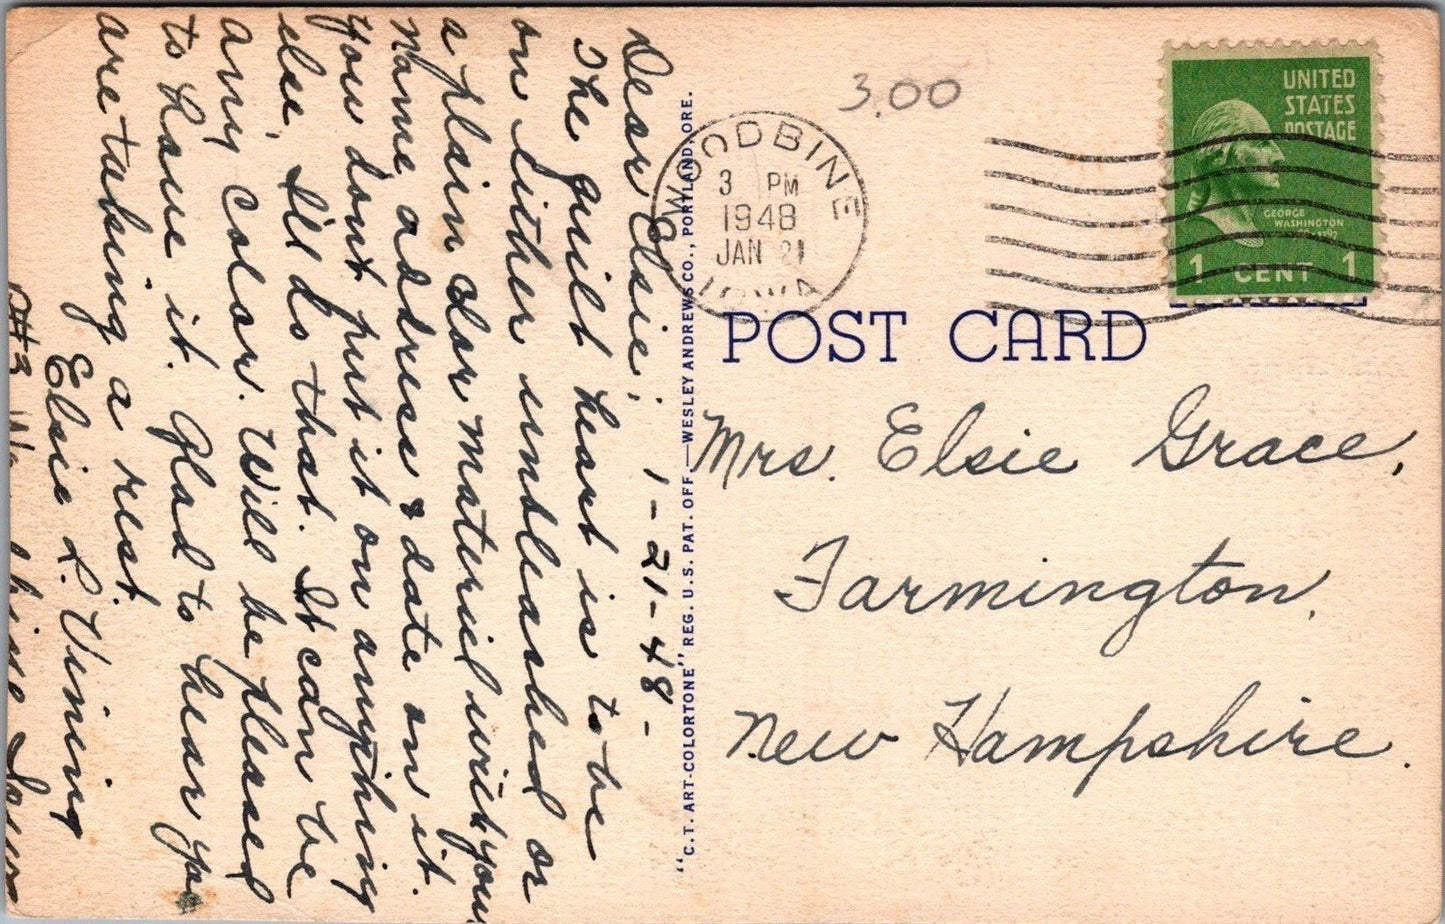 Dear Elsie; 1-21-48-
The quilt heart is to be
on either unbleashed or
a plain clor material with your
Name address & date on it.
You dont put it on anything
else, I'll do that. It can be
any color. Will be pleased
to have it. Glad to hear you
are taking a rest.
Elsie L. Vining
R#3 Woodbine Iowa
"C.T. ART-COLORTONE" REG. U.S. PAT. OFF.—WESLEY ANDREWS CO., PORTLAND, ORE.
3.00
WOODBINE
3 PM
1948
JAN 21
IOWA
UNITED
STATES
POSTAGE
GEORGE
WASHINGTON
1 CENT 1
POST CARD
Mrs. Elsie Grace,
Farmington,
New Hampshire.